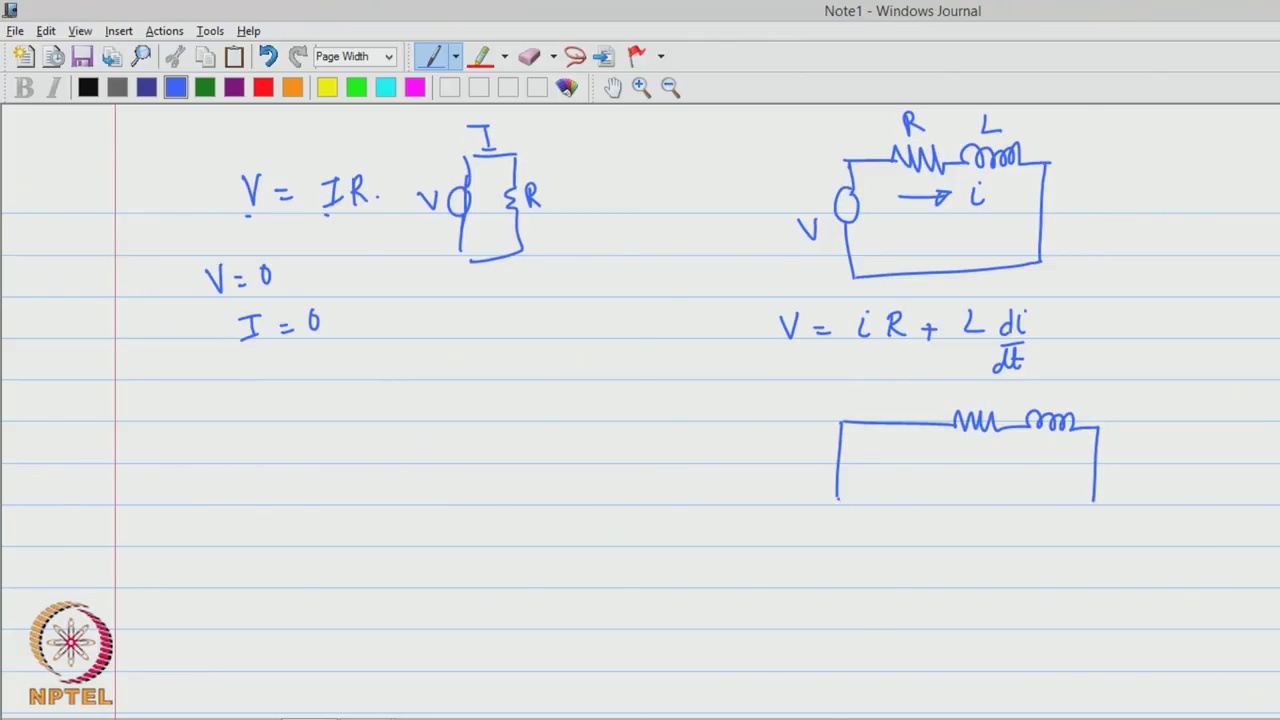 Note1 - Windows Journal
File Edit View Insert Actions Tools Help
Page Width
B I
I
V = IR.
V
R
V = 0
I = 0
R L
i
V
V = i R + L di/dt
NPTEL